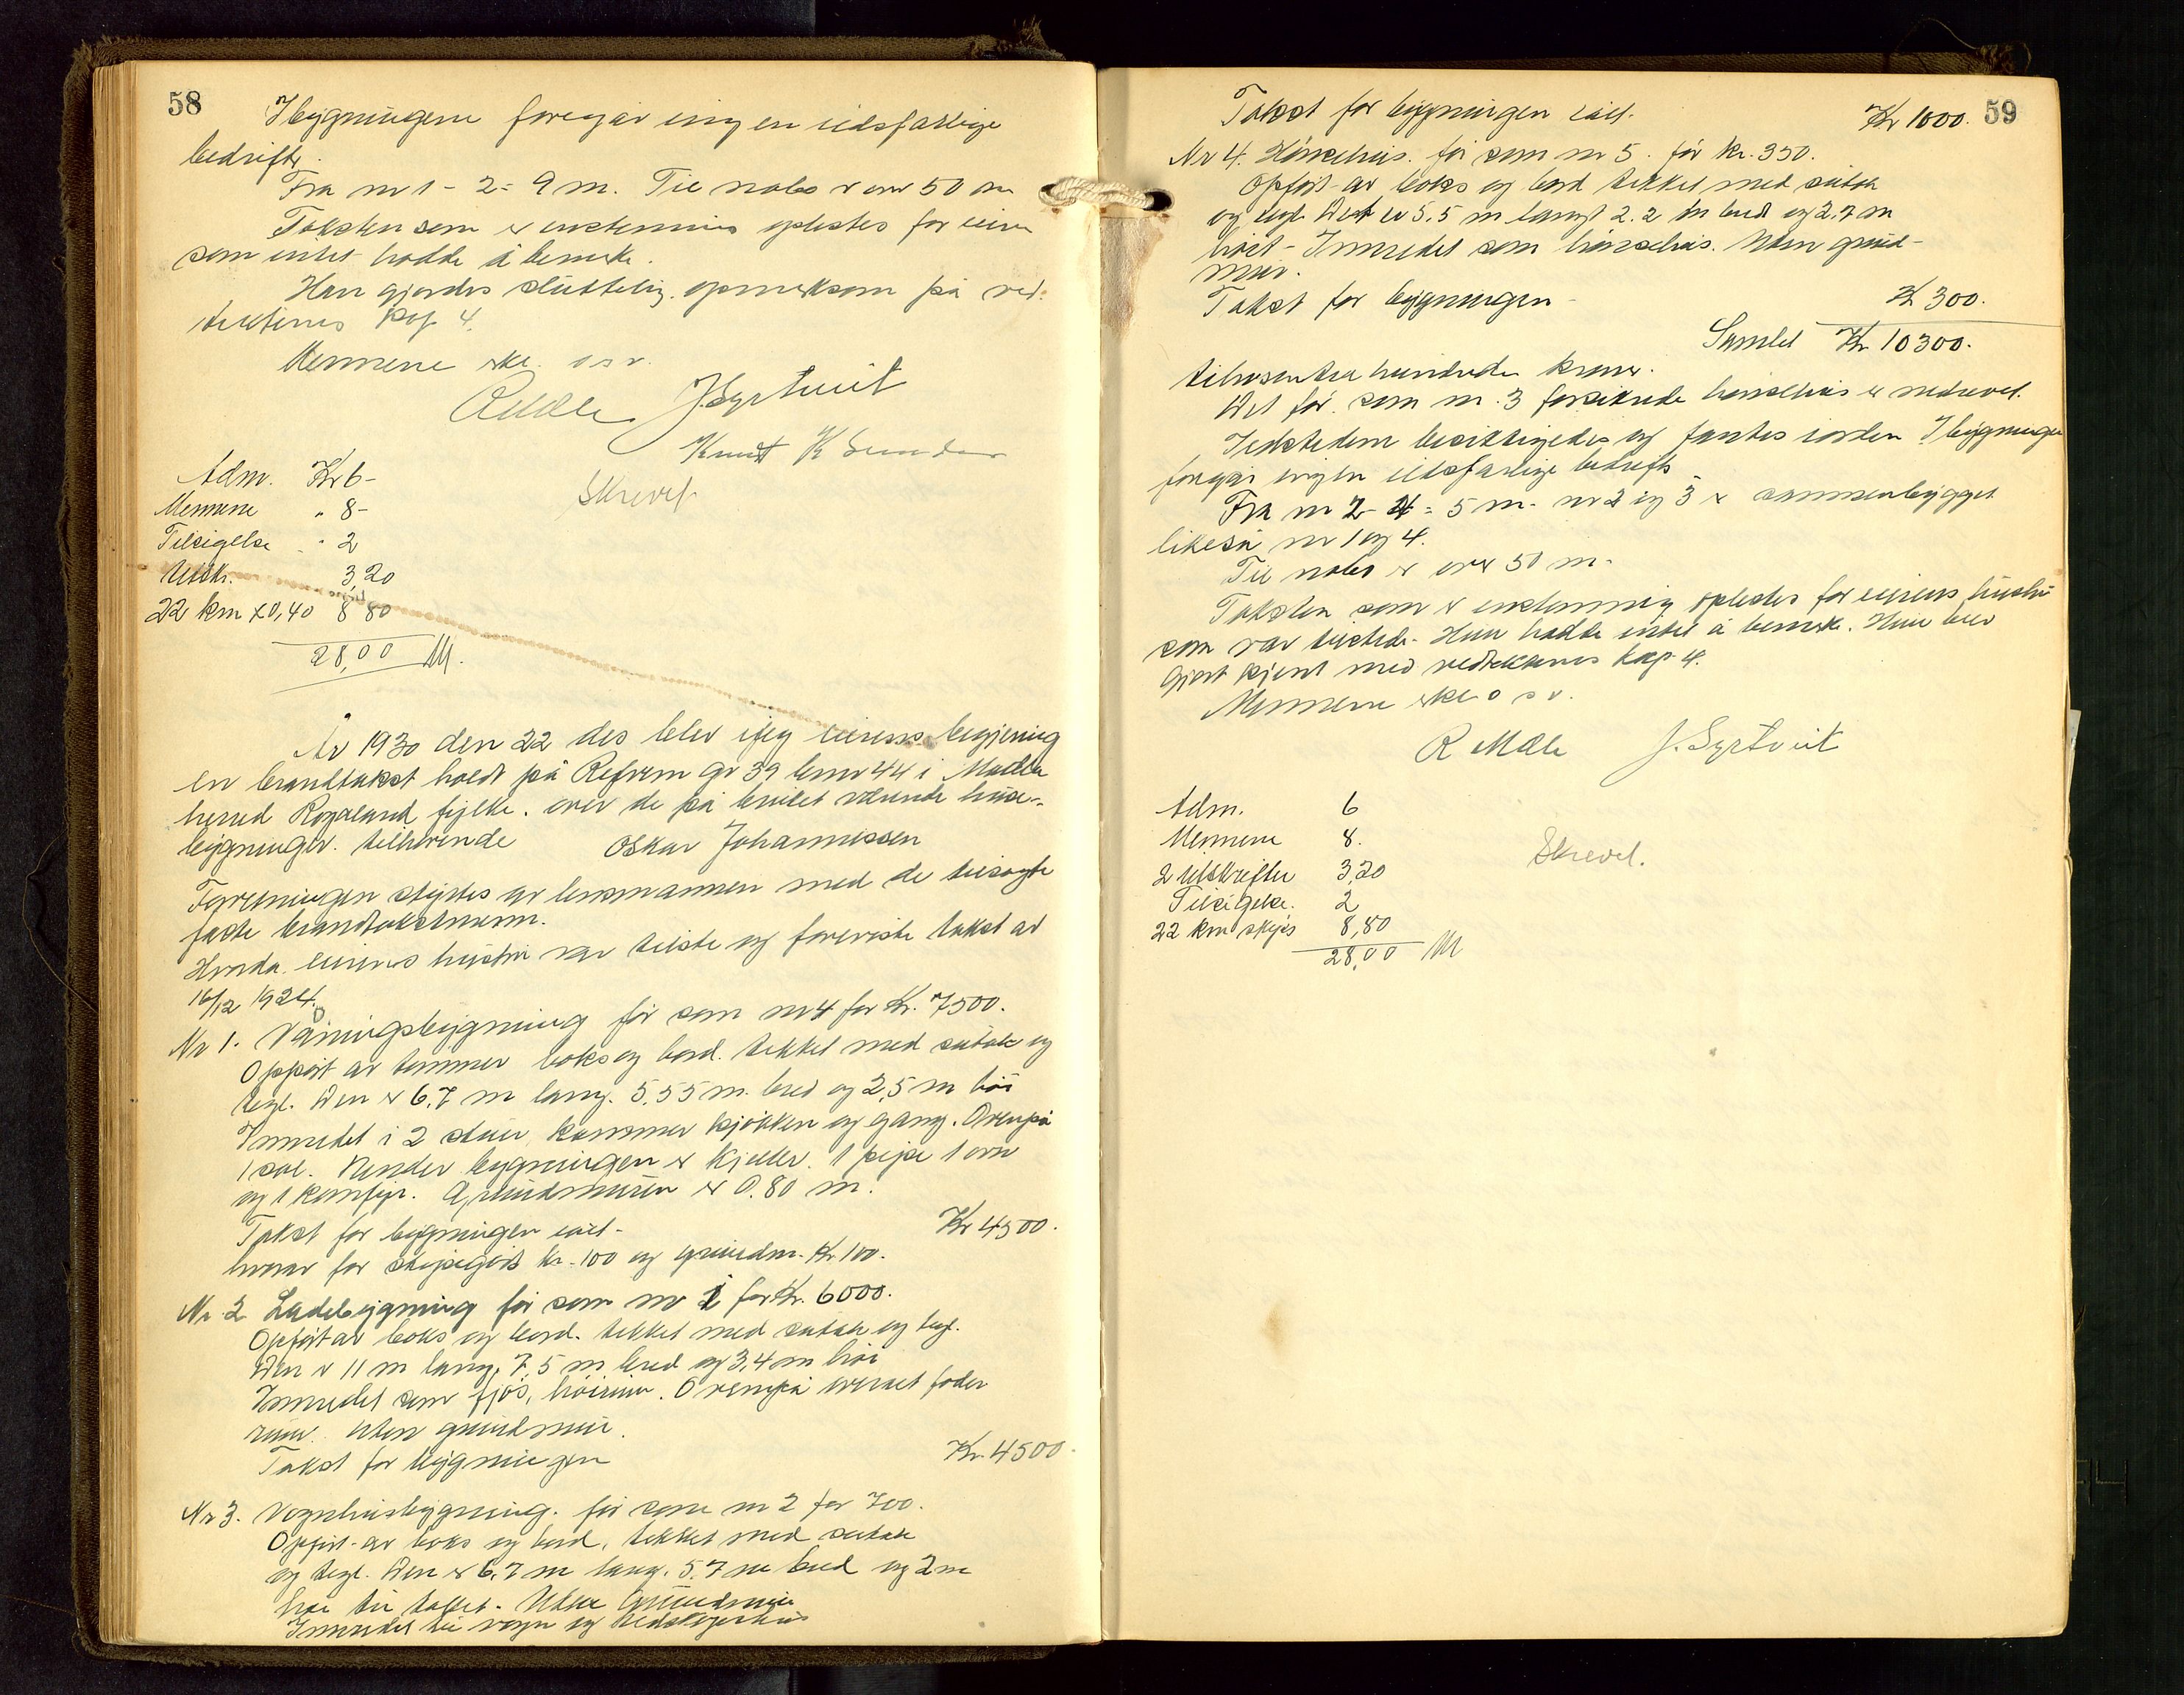 58
I bygningene foregår ingen ildsfarlige
bedrifter.
Fra nr 1 - 2 = 9 m. Til nabo er over 50 m
Taksten som er enstemmig oplestes for eieren
som intet hadde å bemerke.
Han gjordes sluttelig opmerksom på ved-
tektenes kap 4.
Mennene skr. o s v.
R Mæle J. Syrtveit
Knut K Sunder
Adm. Kr 6 -
Mennene " 8 -
Tilsigelse " 2
Utskr. 3,20
22 km x 0,40 8 80
28,00 M.
Skrevet
År 1930 den 22 des blev efter eierens begjering
en brandtakst holdt på Refrem Gr 39 bnr 44 i Madla
herred Rogaland fylke. over de på bruket værende hus-
bygninger. tilhørende Oskar Johannissen
Forretningen styrtes av lensmannen med de tilsagte
faste brandtakstmenn.
eierens hustru var tilstede og foreviste takst av
16/12 1924.
Nr 1. Våningsbygning før som nr 4 for Kr. 7500.
Oppført av tømmer boks og bord. tekket med sutak og
tegl. Den er 6,7 m lang. 5.55 m. bred og 2,5 m høi
Innredet i 2 stuer, kammer kjøkken og gang. Ovenpå
1 sal. Under bygningen er kjeller. 1 pipe 1 ovn
og 1 komfyr. Grundmuren er 0.80 m.
Takst for bygningen ialt - Kr 4500.
hvorav for skipegods kr. 100 og grundm. Kr 100.
Nr 2 Ladebygning før som nr 1 for Kr. 6000.
Opført av boks og bord. tekket med sutak og tegl.
Den er 11 m lang, 7,5 m bred og 3,4 m høi
Innredet som fjøs, høirum. Ovenpå foder
rum. Uten grundmur.
Takst for bygningen Kr. 4500
Nr 3. Vognhusbygning. før som nr 2 for 700.
Opført av boks og bord, tekket med sutak
og tegl. Den er 6,7 m lang. 5.7 m bred og 2 m
høi til taket. Uten Grundmur
Innredet til vogn og redskapshus
59
Takst for bygningen ialt. Kr 1000.
Nr 4. Hønsehus. før som nr 5. for kr. 350.
Opført av boks og bord tekket med sutak
og tegl. Det er 5.5 m langt 2.2 m bred og 2.7 m
høit - Innredet som hønsehus. Uten grund-
mur.
Takst for bygningen - Kr 300.
Samlet Kr 10300.
titusentrehundrede kroner.
Det før som nr. 3 forsikrede hønsehus er nedrevet.
Ildstedene besiktigedes og fantes iorden I bygningene
foregår ingen ildsfarlige bedrifter
Fra nr 2 - 4 = 5 m. nr 2 og 3 er sammenbygget
likeså nr 1 og 4.
Til nabo er over 50 m.
Taksten som er enstemmig oplestes for eierens hustru
som var tilstede. Hun hadde intet å bemerke. Hun blev
gjort kjent med vedtektenes kap. 4.
Mennene skr o s v.
R Mæle J. Syrtveit
Adm. 6
Mennene 8.
2 utskrifter 3,20
Tilsigelse. 2
22 km skyss 8,80
28,00 M
Skrevet.